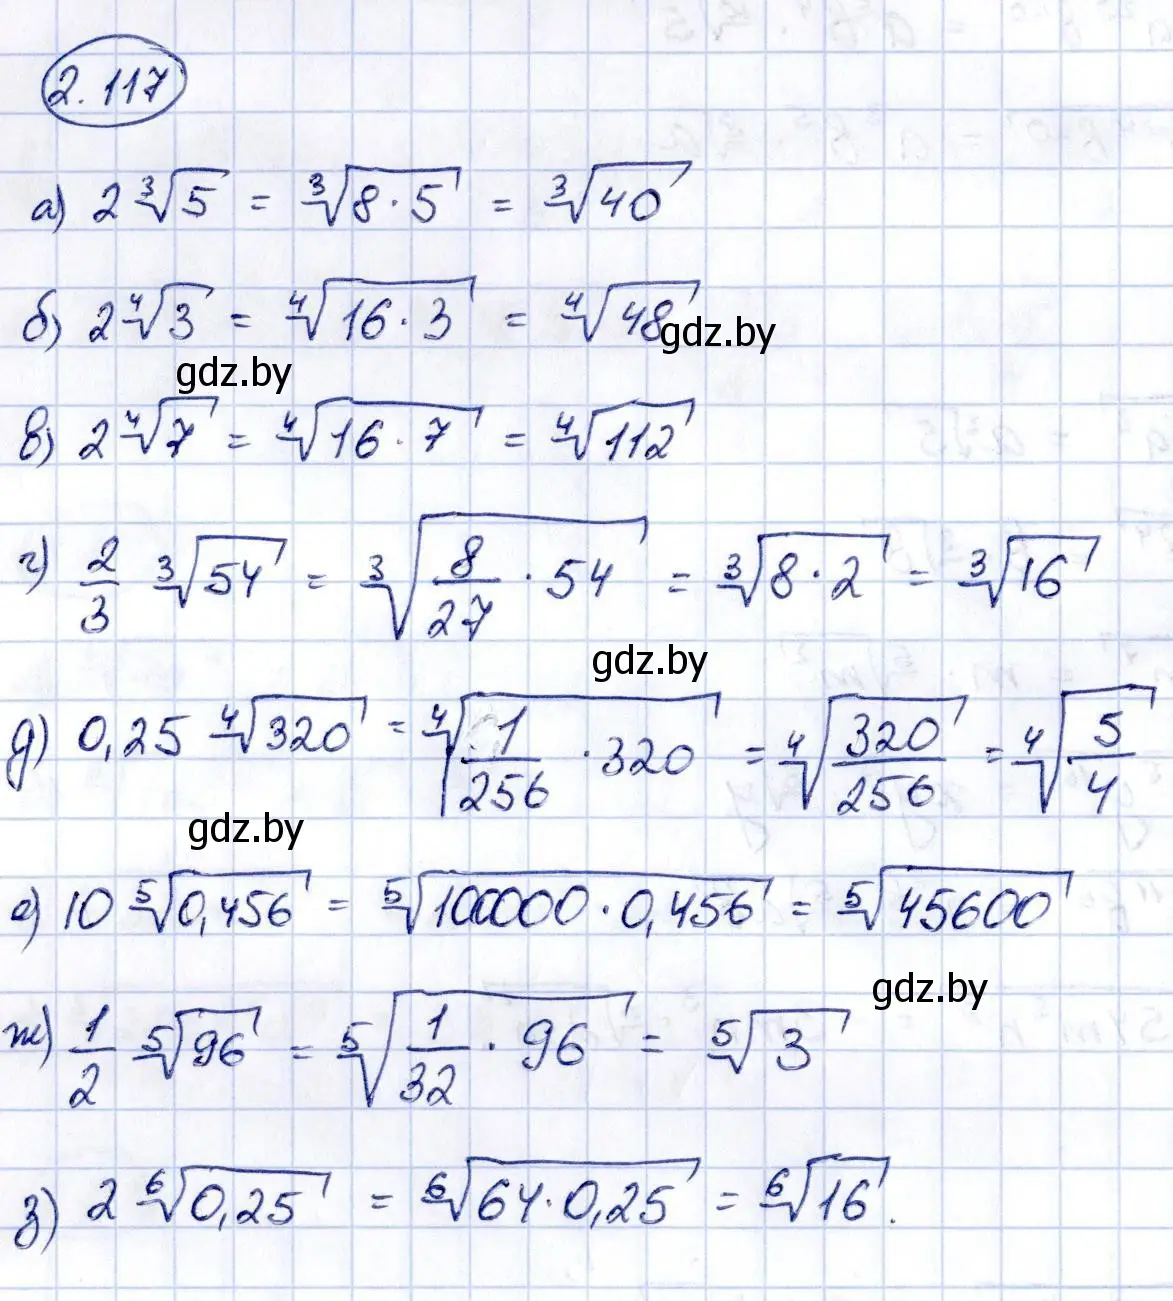 2.117
а) 2∛5 = ∛(8·5) = ∛40
б) 2∜3 = ∜(16·3) = ∜48
gdz.by
gdz.by
в) 2∜7 = ∜(16·7) = ∜112
г) 2/3 ∛54 = ∛(8/27 · 54) = ∛(8·2) = ∛16
gdz.by
д) 0,25 ∜320 = ∜(1/256 · 320) = ∜(320/256) = ∜(5/4)
gdz.by
е) 10 ⁵√0,456 = ⁵√(100000·0,456) = ⁵√45600
gdz.by
ж) 1/2 ⁵√96 = ⁵√(1/32 · 96) = ⁵√3
з) 2 ⁶√0,25 = ⁶√(64·0,25) = ⁶√16.